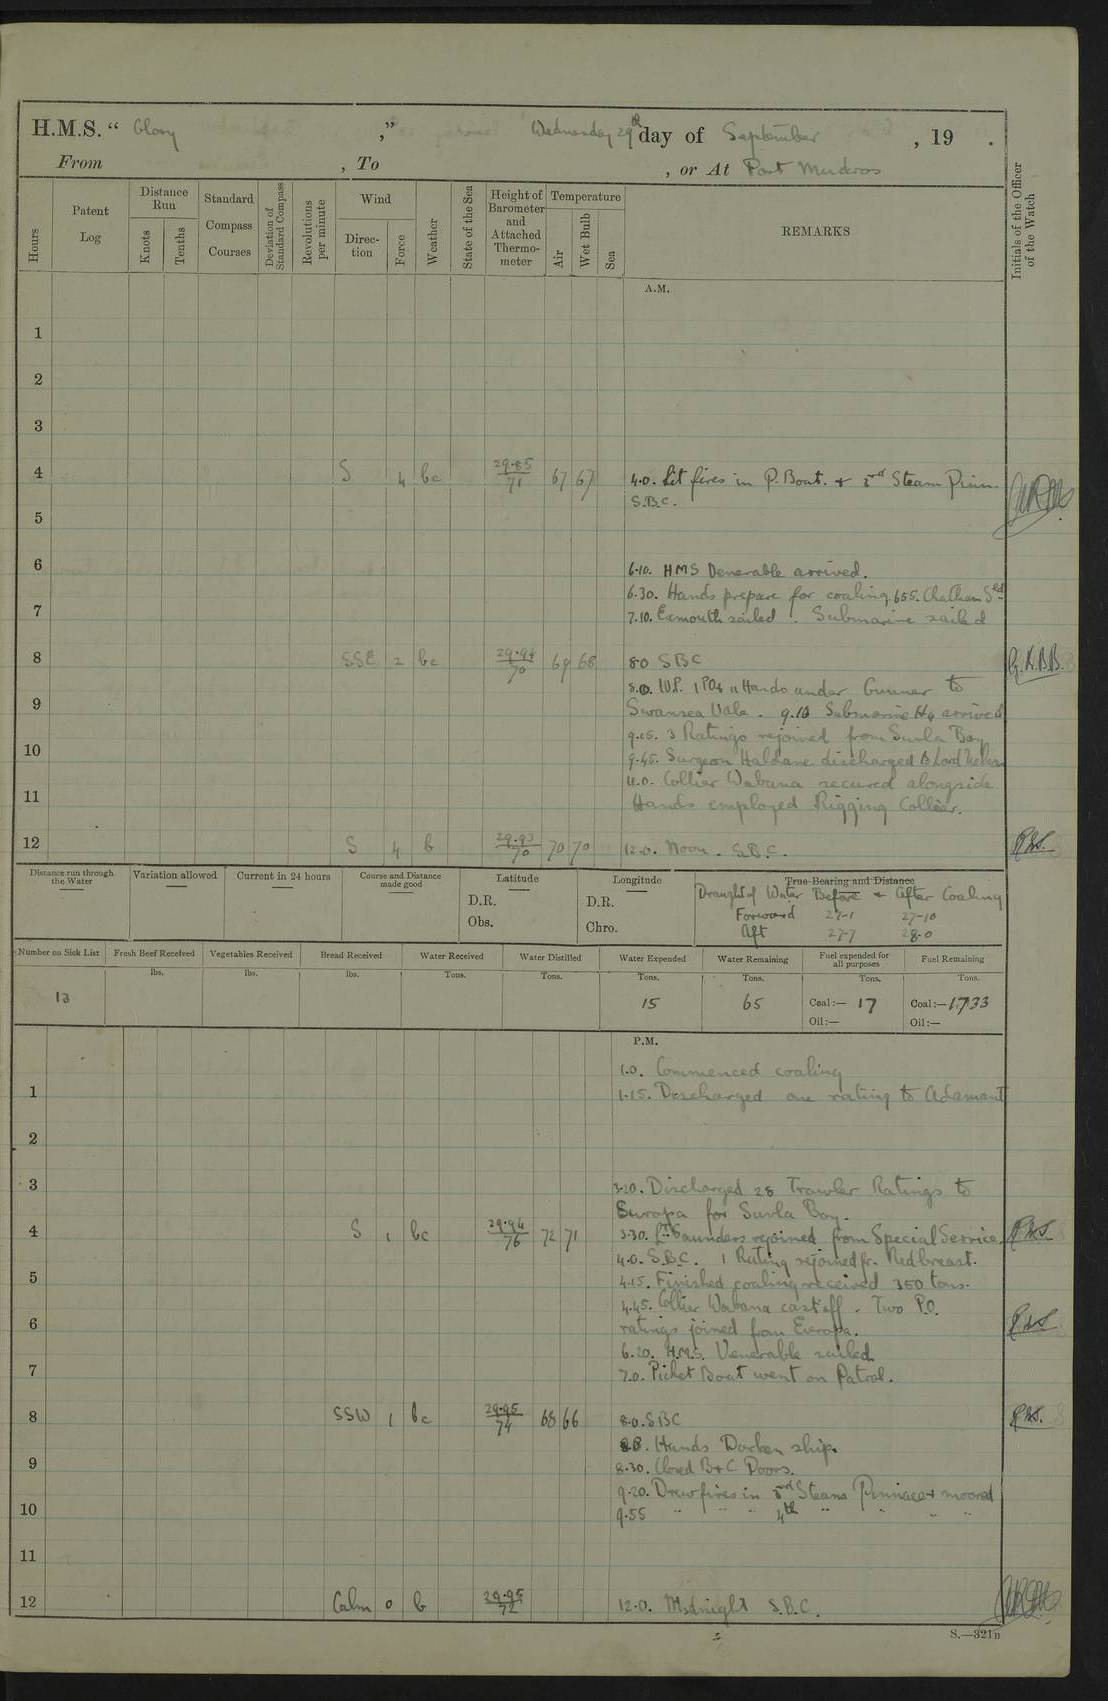 H.M.S. “ Glory ,” Wednesday 29th day of September , 19 .
From , To , or At Port Mudros
Hours
Patent Log
Distance Run
Knots
Tenths
Standard Compass Courses
Deviation of Standard Compass
Revolutions per minute
Wind
Direc- tion
Force
Weather
State of the Sea
Height of Barometer and Attached Thermo- meter
Temperature
Air
Wet Bulb
Sea
REMARKS
Initials of the Officer of the Watch
A.M.
1
2
3
4 S 4 bc 29.85 71 67 67 4.0. Lit fires in P. Boat. & 3rd Steam Pinn.
S.B.C.
5
6
6.10. HMS Venerable arrived.
6.30. Hands prepare for coaling. 655. Chatham Sld
7 7.10. Exmouth sailed. Submarine sailed
8 SSE 2 bc 29.94 70 69 68 8.0 SBC G.K.B.B.
8.0. 1 PO & 11 Hands under Gunner to
9 Swansea Vale. 9.10 Submarine H4 arrived
9.15. 3 Ratings rejoined from Suvla Bay
10 9.45. Surgeon Haldane discharged to Lord Nelson
11.0. Collier Wabana secured alongside
11 Hands employed Rigging Collier.
12 S 4 b 29.93 70 70 70 12.0. Noon. S.B.C.
Distance run through the Water
Variation allowed
Current in 24 hours
Course and Distance made good
Latitude
D.R.
Obs.
Longitude
D.R.
Chro.
True Bearing and Distance
Draught of Water Before & After Coaling
Forward 27-1 27-10
Aft 27-7 28-0
Number on Sick List
Fresh Beef Received
Vegetables Received
Bread Received
Water Received
Water Distilled
Water Expended
Water Remaining
Fuel expended for all purposes
Fuel Remaining
lbs. lbs. lbs. Tons. Tons. Tons. Tons. Tons. Tons.
13 15 65 Coal:— 17 Coal:— 1733
Oil:— Oil:—
P.M.
1.0. Commenced coaling
1 1.15. Discharged one rating to Adamant
2
3 3.20. Discharged 28 Trawler Ratings to
Europa for Suvla Bay.
4 S 1 bc 29.94 76 72 71 3.30. Lt Saunders rejoined from Special Service.
4.0. S.B.C. 1 Rating rejoined fr. Redbreast.
5 4.15. Finished coaling received 350 tons.
4.45. Collier Wabana cast off. Two P.O.
6 ratings joined from Europa.
6.20. H.M.S. Venerable sailed.
7 7.0. Picket Boat went on Patrol.
8 SSW 1 bc 29.95 74 68 66 8.0. SBC
Hands Darken ship.
9 8.30. Closed B & C Doors.
9.20. Drew fires in 3rd Steam Pinnace & moored
10 9.55 " " " 4th " " " "
11
12 Calm 0 b 29.95 72 12.0. Midnight S.B.C.
S.—321B